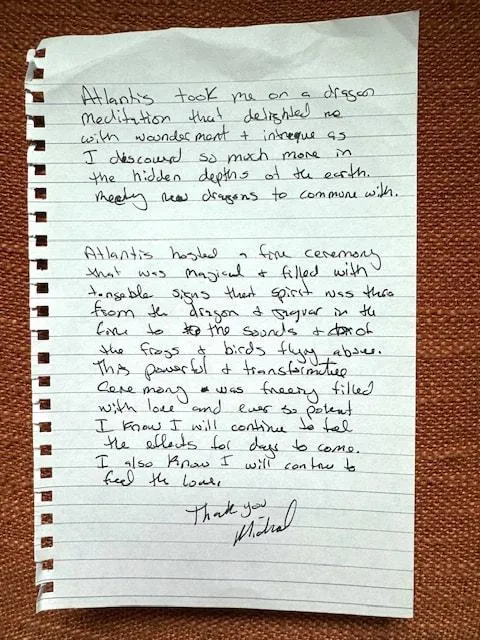 Atlantis took me on a dragon
meditation that delighted me
with wounderment + intregue as
I discoverd so much more in
the hidden depths of the earth.
Meeting new dragons to commune with.
Atlantis hosted a fire ceremony
that was magical + filled with
tangeable signs that spirit was there
from the dragon + jaguar in the
fire to the sounds + of
the frogs + birds flying above.
This powerful + transformative
ceremony was filled
with love and ever so potent
I know I will continue to feel
the effects for days to come.
I also know I will continue to
feel the love.
Thank you
Michael